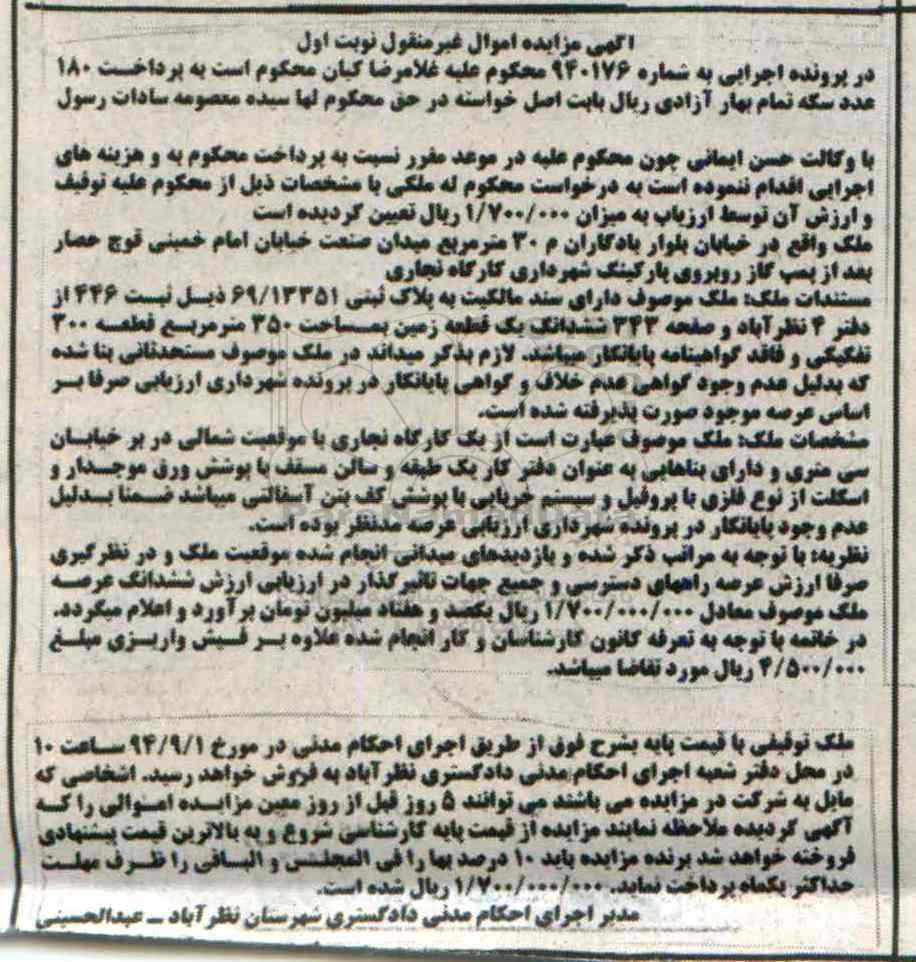 آگهی مزایده اموال غیرمنقول نوبت اول
در پرونده اجرایی به شماره ۹۴۰۱۷۶ محکوم علیه غلامرضا کیان محکوم است به پرداخت ۱۸۰
عدد سکه تمام بهار آزادی ریال بابت اصل خواسته در حق محکوم لها سیده معصومه سادات رسول
با وکالت حسن ایمانی چون محکوم علیه در موعد مقرر نسبت به پرداخت محکوم به و هزینه های
اجرایی اقدام ننموده است به درخواست محکوم له ملکی با مشخصات ذیل از محکوم علیه توقیف
و ارزش آن توسط ارزیاب به میزان ۱/۷۰۰/۰۰۰ ریال تعیین گردیده است
ملک واقع در خیابان بلوار یادگاران م ۳۰ مترمربع میدان صنعت خیابان امام خمینی قوچ حصار
بعد از پمپ گاز روبروی پارکینگ شهرداری کارگاه تجاری
مستندات ملک: ملک موصوف دارای سند مالکیت به پلاک ثبتی ۶۹/۱۳۳۵۱ ذیل ثبت ۴۴۶ از
دفتر ۴ نظرآباد و صفحه ۳۴۳ ششدانگ یک قطعه زمین بمساحت ۳۵۰ مترمربع قطعه ۳۰۰
تفکیکی و فاقد گواهینامه پایانکار میباشد. لازم بذکر میداند در ملک موصوف مستحدثاتی بنا شده
که بدلیل عدم وجود گواهی عدم خلاف و گواهی پایانکار در پرونده شهرداری ارزیابی صرفا بر
اساس عرصه موجود صورت پذیرفته شده است.
مشخصات ملک: ملک موصوف عبارت است از یک کارگاه تجاری با موقعیت شمالی در بر خیابان
سی متری و دارای بناهایی به عنوان دفتر کار یک طبقه و سالن مسقف با پوشش ورق موجدار و
اسکلت از نوع فلزی با پروفیل و سیستم خرپایی با پوشش کف بتن آسفالتی میباشد ضمنا بدلیل
عدم وجود پایانکار در پرونده شهرداری ارزیابی عرصه مدنظر بوده است.
نظریه: با توجه به مراتب ذکر شده و بازدیدهای میدانی انجام شده موقعیت ملک و در نظرگیری
صرفا ارزش عرصه راههای دسترسی و جمیع جهات تاثیرگذار در ارزیابی ارزش ششدانگ عرصه
ملک موصوف معادل ۱/۷۰۰/۰۰۰/۰۰۰ ریال یکصد و هفتاد میلیون تومان برآورد و اعلام میگردد.
در خاتمه با توجه به تعرفه کانون کارشناسان و کار انجام شده علاوه بر فیش واریزی مبلغ
۴/۵۰۰/۰۰۰ ریال مورد تقاضا میباشد.
ملک توقیفی با قیمت پایه بشرح فوق از طریق اجرای احکام مدنی در مورخ ۹۴/۹/۱ ساعت ۱۰
در محل دفتر شعبه اجرای احکام مدنی دادگستری نظرآباد به فروش خواهد رسید. اشخاصی که
مایل به شرکت در مزایده می باشند می توانند ۵ روز قبل از روز معین مزایده اموالی را که
آگهی گردیده ملاحظه نمایند مزایده از قیمت پایه کارشناسی شروع و به بالاترین قیمت پیشنهادی
فروخته خواهد شد برنده مزایده باید ۱۰ درصد بها را فی المجلس و الباقی را ظرف مهلت
حداکثر یکماه پرداخت نماید. ۱/۷۰۰/۰۰۰/۰۰۰ ریال شده است.
مدیر اجرای احکام مدنی دادگستری شهرستان نظرآباد ـ عبدالحسینی